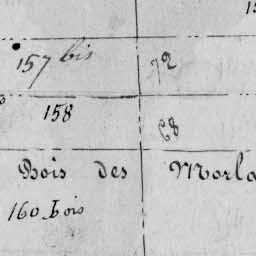 157 bis 72
158 68
Bois des Morla
160 bois